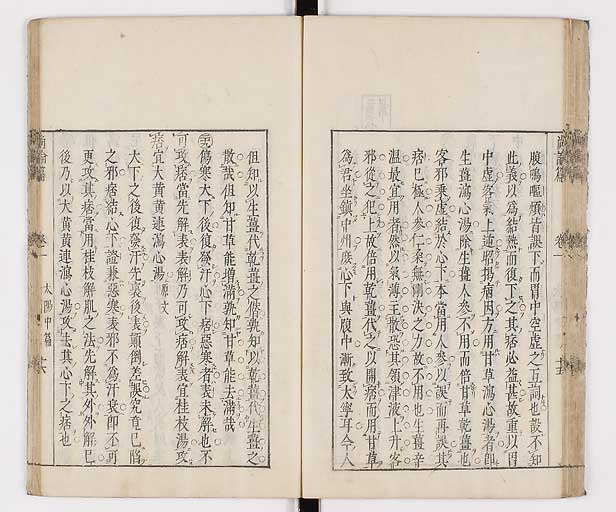 腹鳴嘔煩皆誤下而胃中空虛之互詞也設不知
此義以爲結熱而復下之其痞必益甚故重以胃
中虛客氣上逆昭揭病因方用甘草瀉心湯者即
生薑瀉心湯除生薑人參不用而倍甘草乾薑也
客邪乘虛結於心下本當用人參以誤而再誤其
痞已極人參仁柔無剛決之力故不用也生薑辛
溫最宜用者然以氣薄主散恐其領津液上升客
邪從之犯上故倍用乾薑代之以開痞而用甘草
爲君坐鎮中州庶心下與腹中漸致太寧耳今人
但知以生薑代乾薑之僭孰知以乾薑代生薑之
散哉但知甘草能增滿孰知甘草能去滿哉
傷寒大下後復發汗心下痞惡寒者表未解也不
可攻痞當先解表表解乃可攻痞解表宜桂枝湯攻
痞宜大黃黃連瀉心湯原文
大下之後復發汗先裏後表顛倒差誤究竟已䧟
之邪痞結心下證兼惡寒表邪不爲汗衰即不可
更攻其痞當用桂枝解肌之法先解其外外解已
後乃以大黃黃連瀉心湯攻去其心下之痞也
尚論篇
卷一
太陽中篇
十六